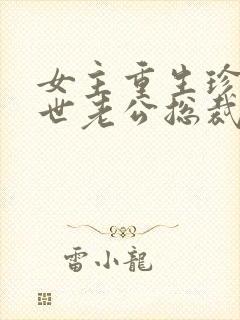 女主重生珍
世老公总裁
雷小龍